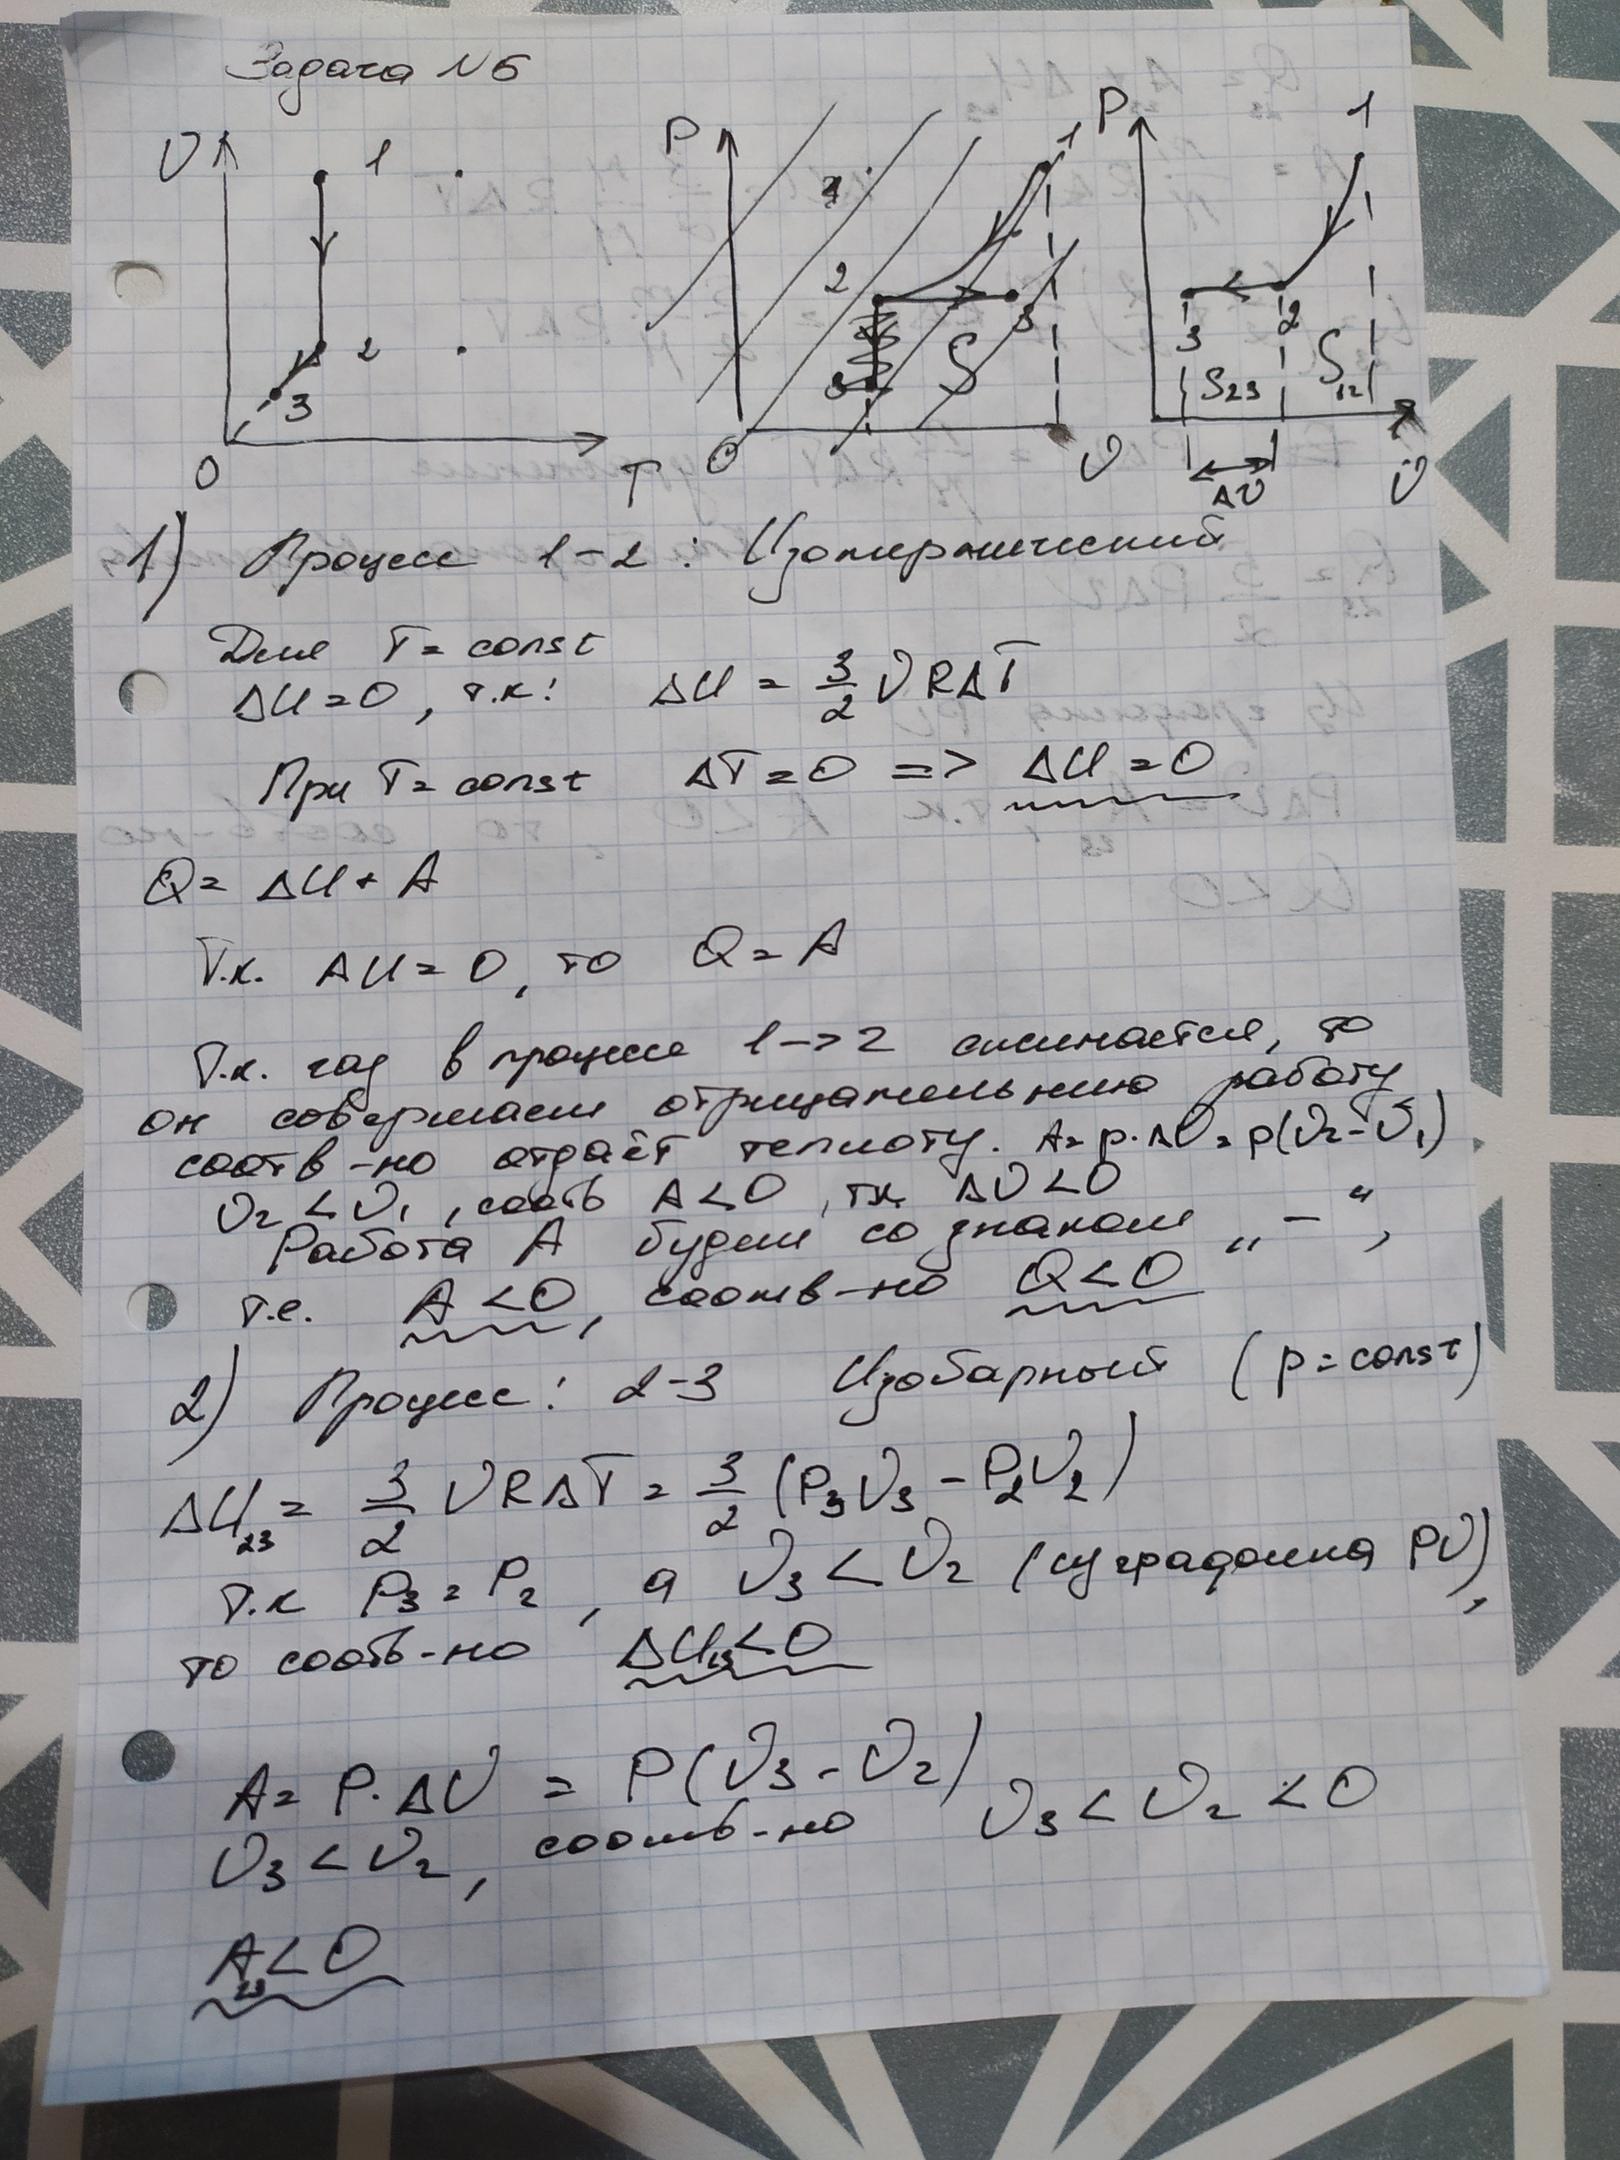 Задача N6
V 1 2 3 0 T
P 1 2 3 S 0 V
P 1 2 3 S23 S12 ΔV V
1) Процесс 1-2: Изотермический
Для T = const
ΔU=0, т.к: ΔU = 3/2 νRΔT
При T = const ΔT=0 => ΔU=0
Q= ΔU + A
Т.к. ΔU=0, то Q=A
Т.к. газ в процессе 1->2 сжимается, то
он совершает отрицательную работу
соотв-но отдаёт теплоту. A=p·ΔV=p(V2-V1)
V2<V1, соотв A<0, т.к. ΔV<0
Работа A будет со знаком „-“,
т.е. A<0, соотв-но Q<0
2) Процесс: 2-3 Изобарный (p=const)
ΔU23= 3/2 νRΔT = 3/2 (P3V3 - P2V2)
Т.к P3=P2, а V3<V2 (из графика PV),
то соотв-но ΔU23<0
A= P·ΔV = P(V3-V2)
V3<V2, соотв-но V3<V2<0
A23<0